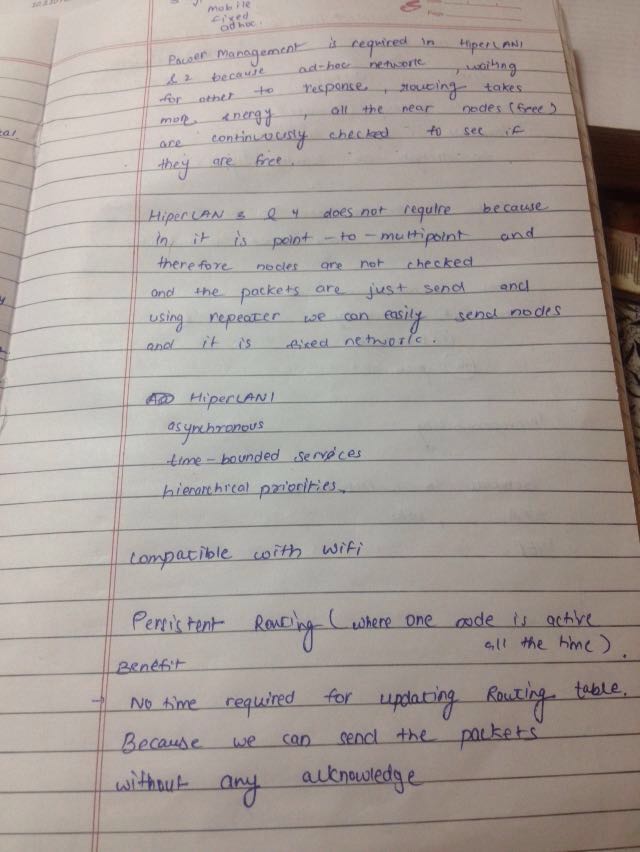 mobile
fixed
adhoc.
Power Management is required in HiperLAN1
& 2 because ad-hoc network, waiting
for other to response, routing takes
more energy, all the near nodes (free)
are continuously checked to see if
they are free.
HiperLAN 3 & 4 does not require because
in it is point-to-multipoint and
therefore nodes are not checked
and the packets are just send and
using repeater we can easily send nodes
and it is fixed network.
HiperLAN1
asynchronous
time-bounded services
hierarchical priorities.
Compatible with wifi
Persistent Routing (where one node is active
all the time).
Benefit
→ No time required for updating Routing table.
Because we can send the packets
without any acknowledge